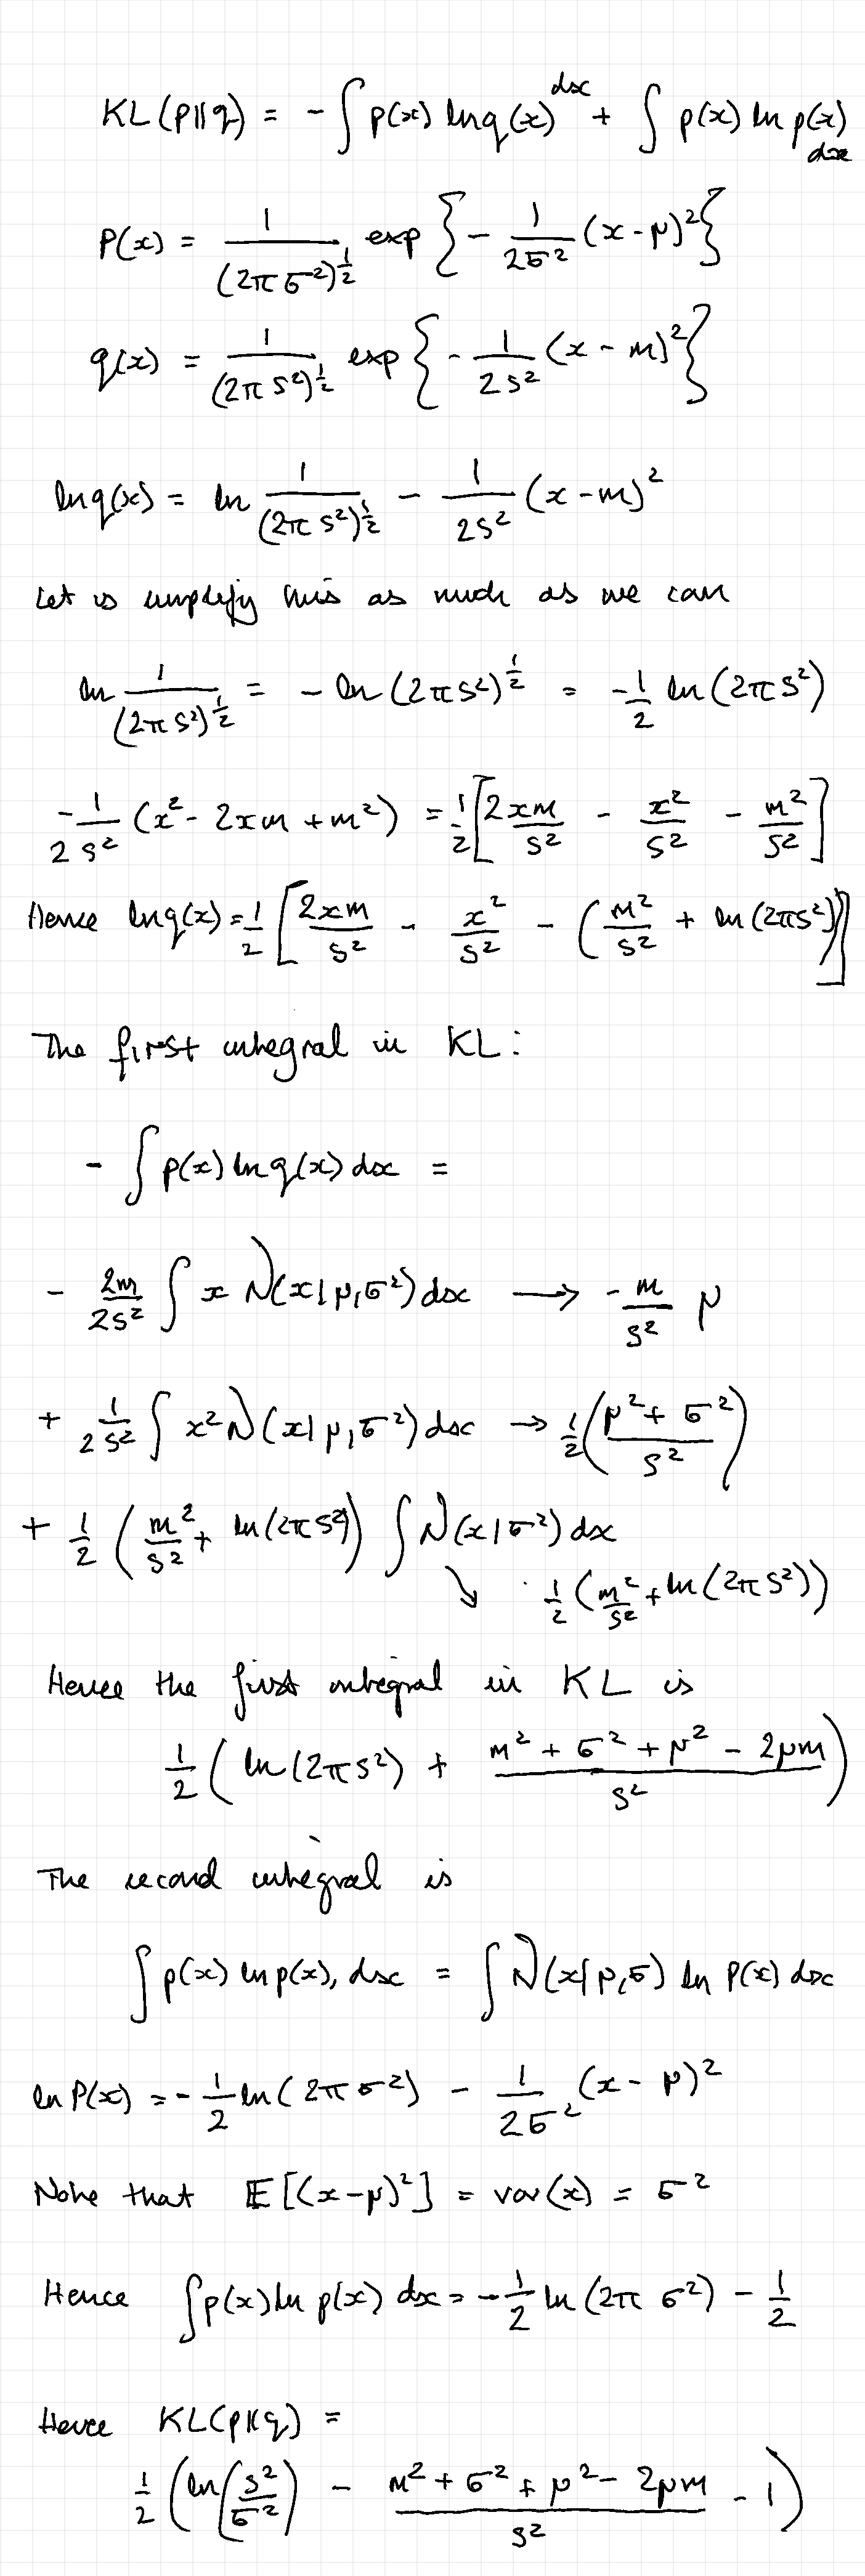 KL(p||q) = - ∫ p(x) ln q(x) dx + ∫ p(x) ln p(x) dx
P(x) = 1/(2πσ²)^½ exp { - 1/2σ² (x-μ)² }
q(x) = 1/(2πs²)^½ exp { - 1/2s² (x-m)² }
ln q(x) = ln 1/(2πs²)^½ - 1/2s² (x-m)²
Let us simplify this as much as we can
ln 1/(2πs²)^½ = - ln (2πs²)^½ = -1/2 ln (2πs²)
-1/2s² (x² - 2xm + m²) = 1/2 [ 2xm/s² - x²/s² - m²/s² ]
Hence ln q(x) = 1/2 [ 2xm/s² - x²/s² - ( m²/s² + ln (2πs²) ) ]
The first integral in KL:
- ∫ p(x) ln q(x) dx =
- 2m/2s² ∫ x N(x|μ,σ²) dx → - m/s² μ
+ 1/2s² ∫ x² N(x|μ,σ²) dx → 1/2 ( μ² + σ² / s² )
+ 1/2 ( m²/s² + ln(2πs²) ) ∫ N(x|σ²) dx
↘ 1/2 ( m²/s² + ln(2πs²) )
Hence the first integral in KL is
1/2 ( ln(2πs²) + m² + σ² + μ² - 2μm / s² )
The second integral is
∫ p(x) ln p(x), dx = ∫ N(x|μ,σ) ln P(x) dx
ln P(x) = - 1/2 ln (2πσ²) - 1/2σ² (x-μ)²
Note that 𝔼[(x-μ)²] = var(x) = σ²
Hence ∫ p(x) ln p(x) dx = - 1/2 ln (2πσ²) - 1/2
Hence KL(p||q) =
1/2 ( ln ( s²/σ² ) - m² + σ² + μ² - 2μm / s² - 1 )